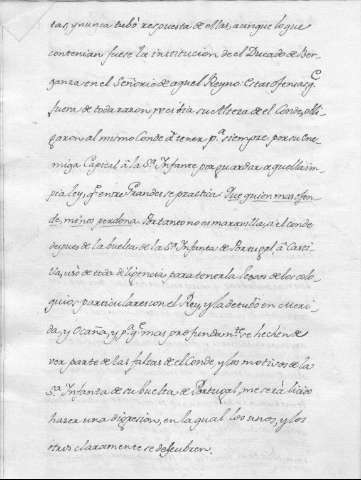 tas, y nunca tubó respuesta de ellas, aunque lo que
contenian fuese la institucion de el Ducado de Ber-
ganza en el Señorio de aquel Reyno. Estas ofensas q.
fuera de toda razon recibia su Alteza de el Conde, obli-
garon al mismo Conde á tener p.a siempre por su ene-
miga Capital á la S.a Infante por guardar aquella im-
pia ley, q.e entre Grandes se practica Que quien mas ofen-
de, menos perdona. Por tanto no es maravilla, si el conde
despues de la buelta de la S.a Infanta de Portugal, á Casti-
lla, usó de toda diligencia, para tenerla lexos de los colo-
quios particulares con el Rey, y la detubo en Meri-
da, y Ocaña, y p.a q.e mas profundam.te se hechen de
ver parte de las faltas de el Conde, y los motivos de la
S.a Infanta de su buelta de Portugal, me será licito
hazer una digresion, en la qual los unos, y los
otros claramente se descubren.